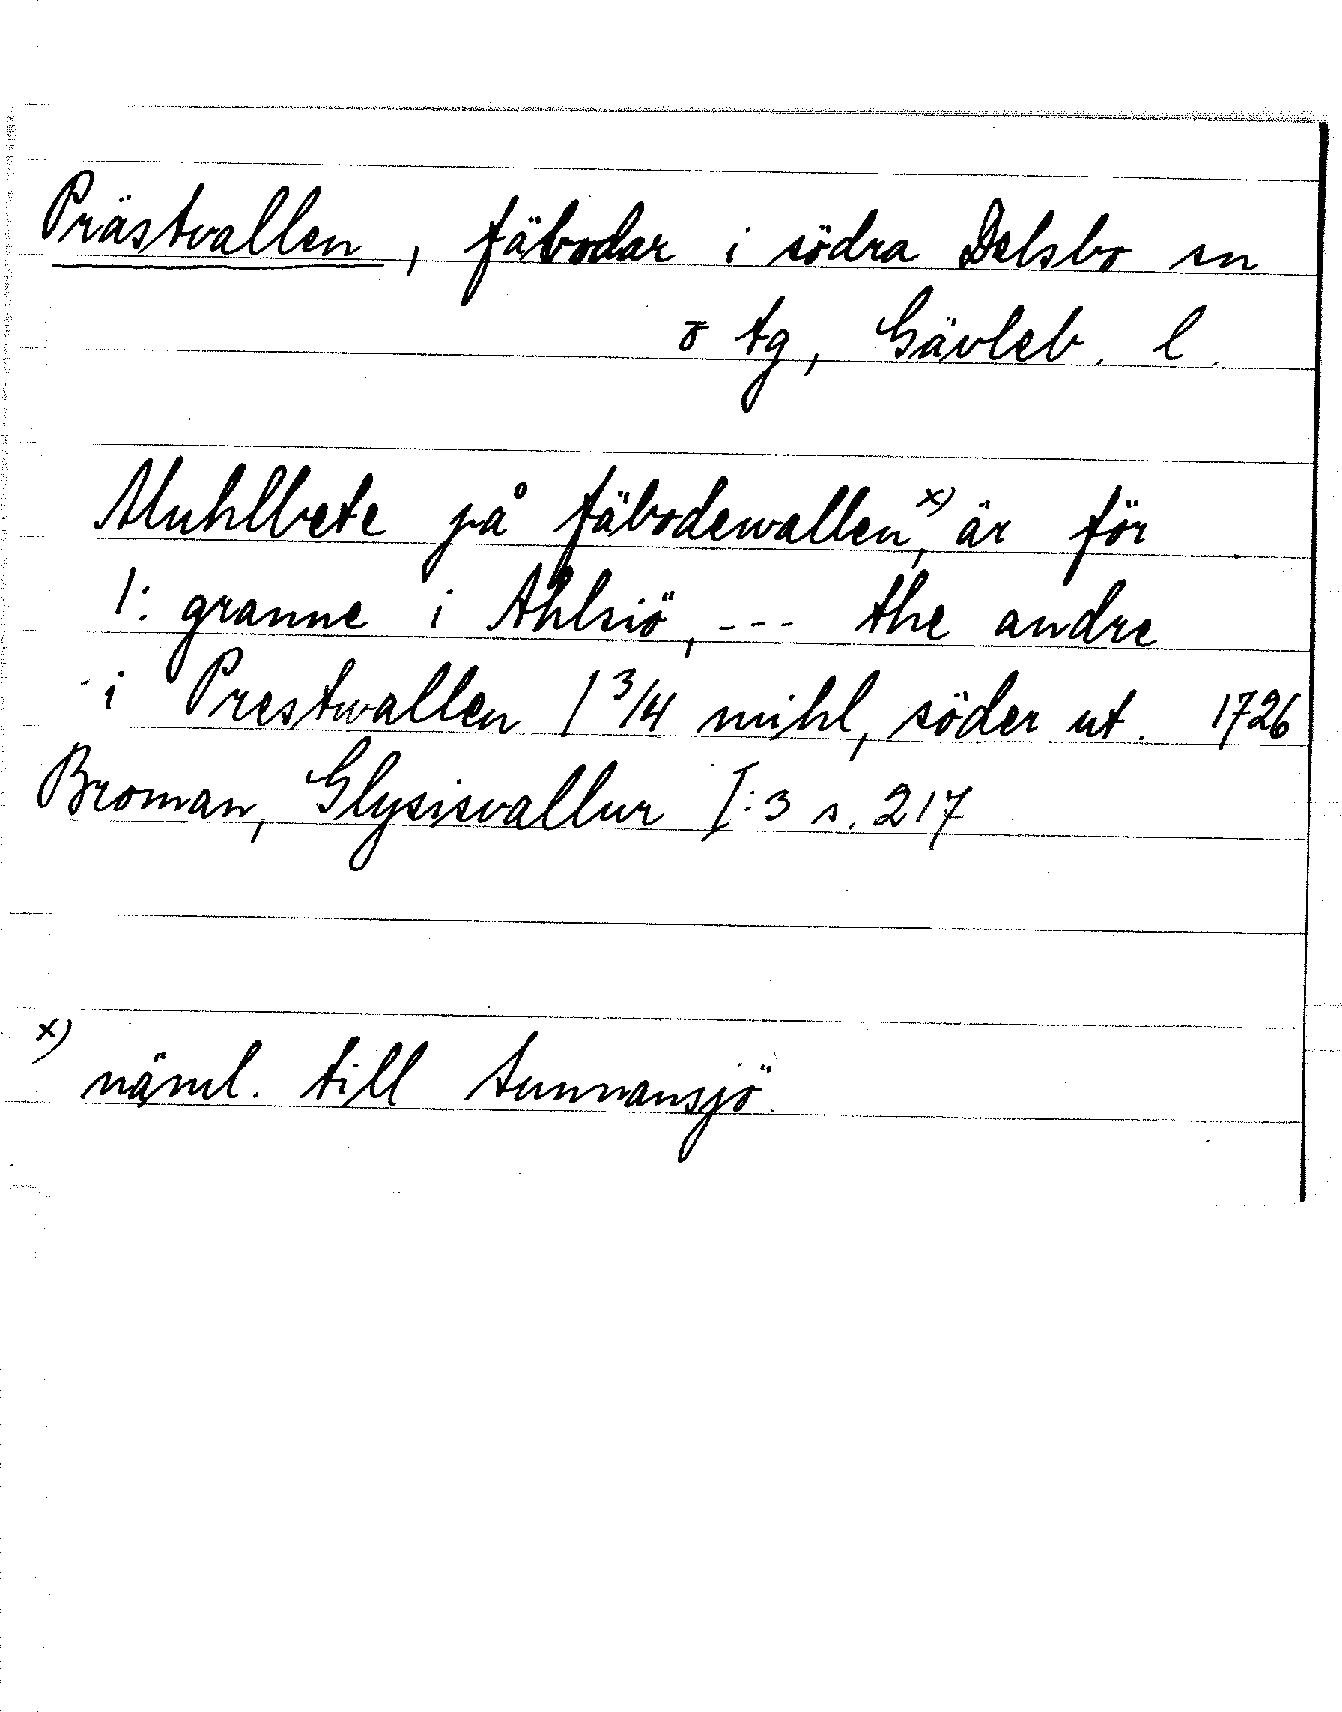 Prästvallen, fäbodar i södra Delsbo sn
o tg, Gävleb. l.
Muhlbete på fäbodewallen x), är för
1: granne i Ahlsiö, --- the andre
i Prestwallen 1 3/4 mihl, söder ut. 1726
Broman, Glysisvallur I:3 s. 217
x) näml. till Sunnansjö.